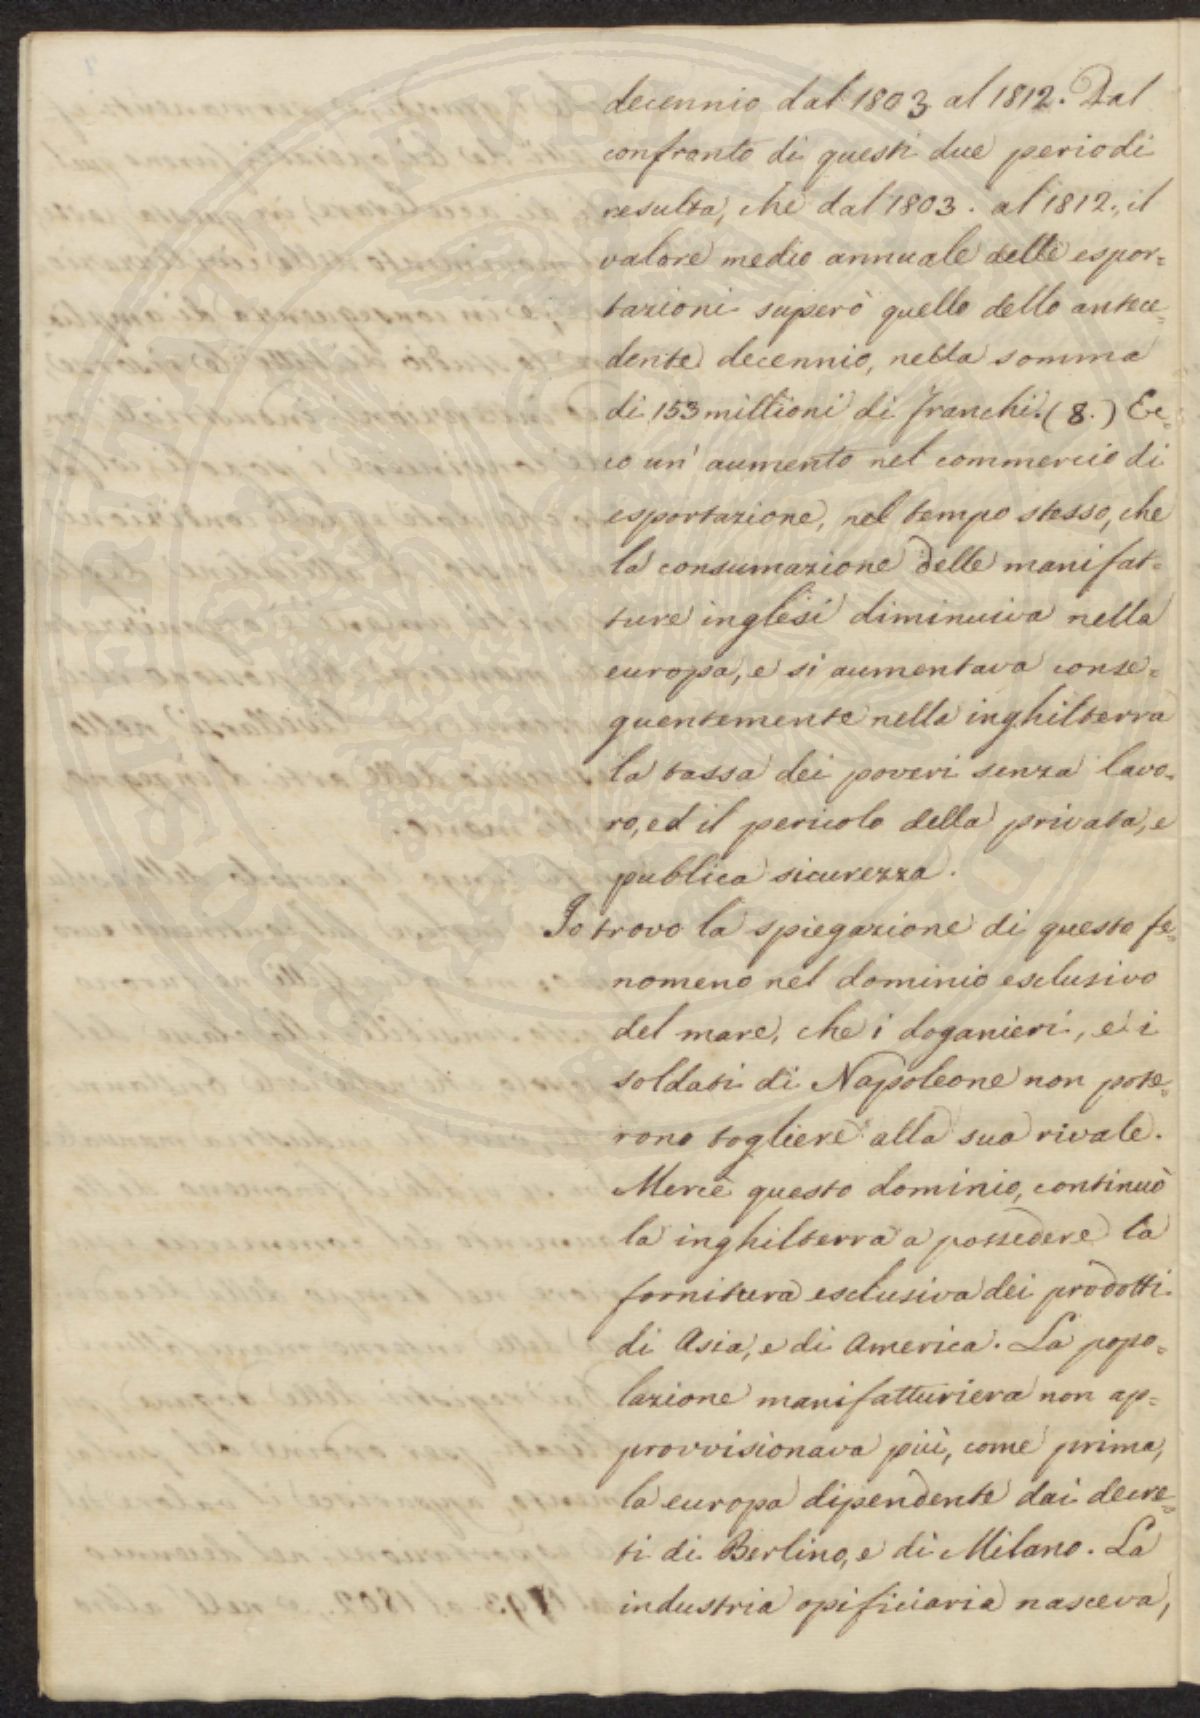 decennio dal 1803 al 1812. Dal
confronto di questi due periodi
resulta, che dal 1803. al 1812., il
valore medio annuale delle espor=
tazioni superò quello dello antece=
dente decennio, nella somma
di 153 millioni di franchi. (8.) Ec=
co un' aumento nel commercio di
esportazione, nel tempo stesso, che
la consumazione delle manifat=
ture inglesi diminuiva nella
europa, e si aumentava conse=
quentemente nella inghilterra
la tassa dei poveri senza lavo=
ro, ed il pericolo della privata, e
publica sicurezza.
Io trovo la spiegazione di questo fe=
nomeno nel dominio esclusivo
del mare, che i doganieri, e i
soldati di Napoleone non pote=
rono togliere alla sua rivale.
Mercè questo dominio, continuò
la inghilterra a possedere la
fornitura esclusiva dei prodotti
di Asia, e di America. La popo=
lazione manifatturiera non ap=
provvisionava più, come prima,
la europa dipendente dai decre=
ti di Berlino, e di Milano. La
industria opificiaria nasceva,